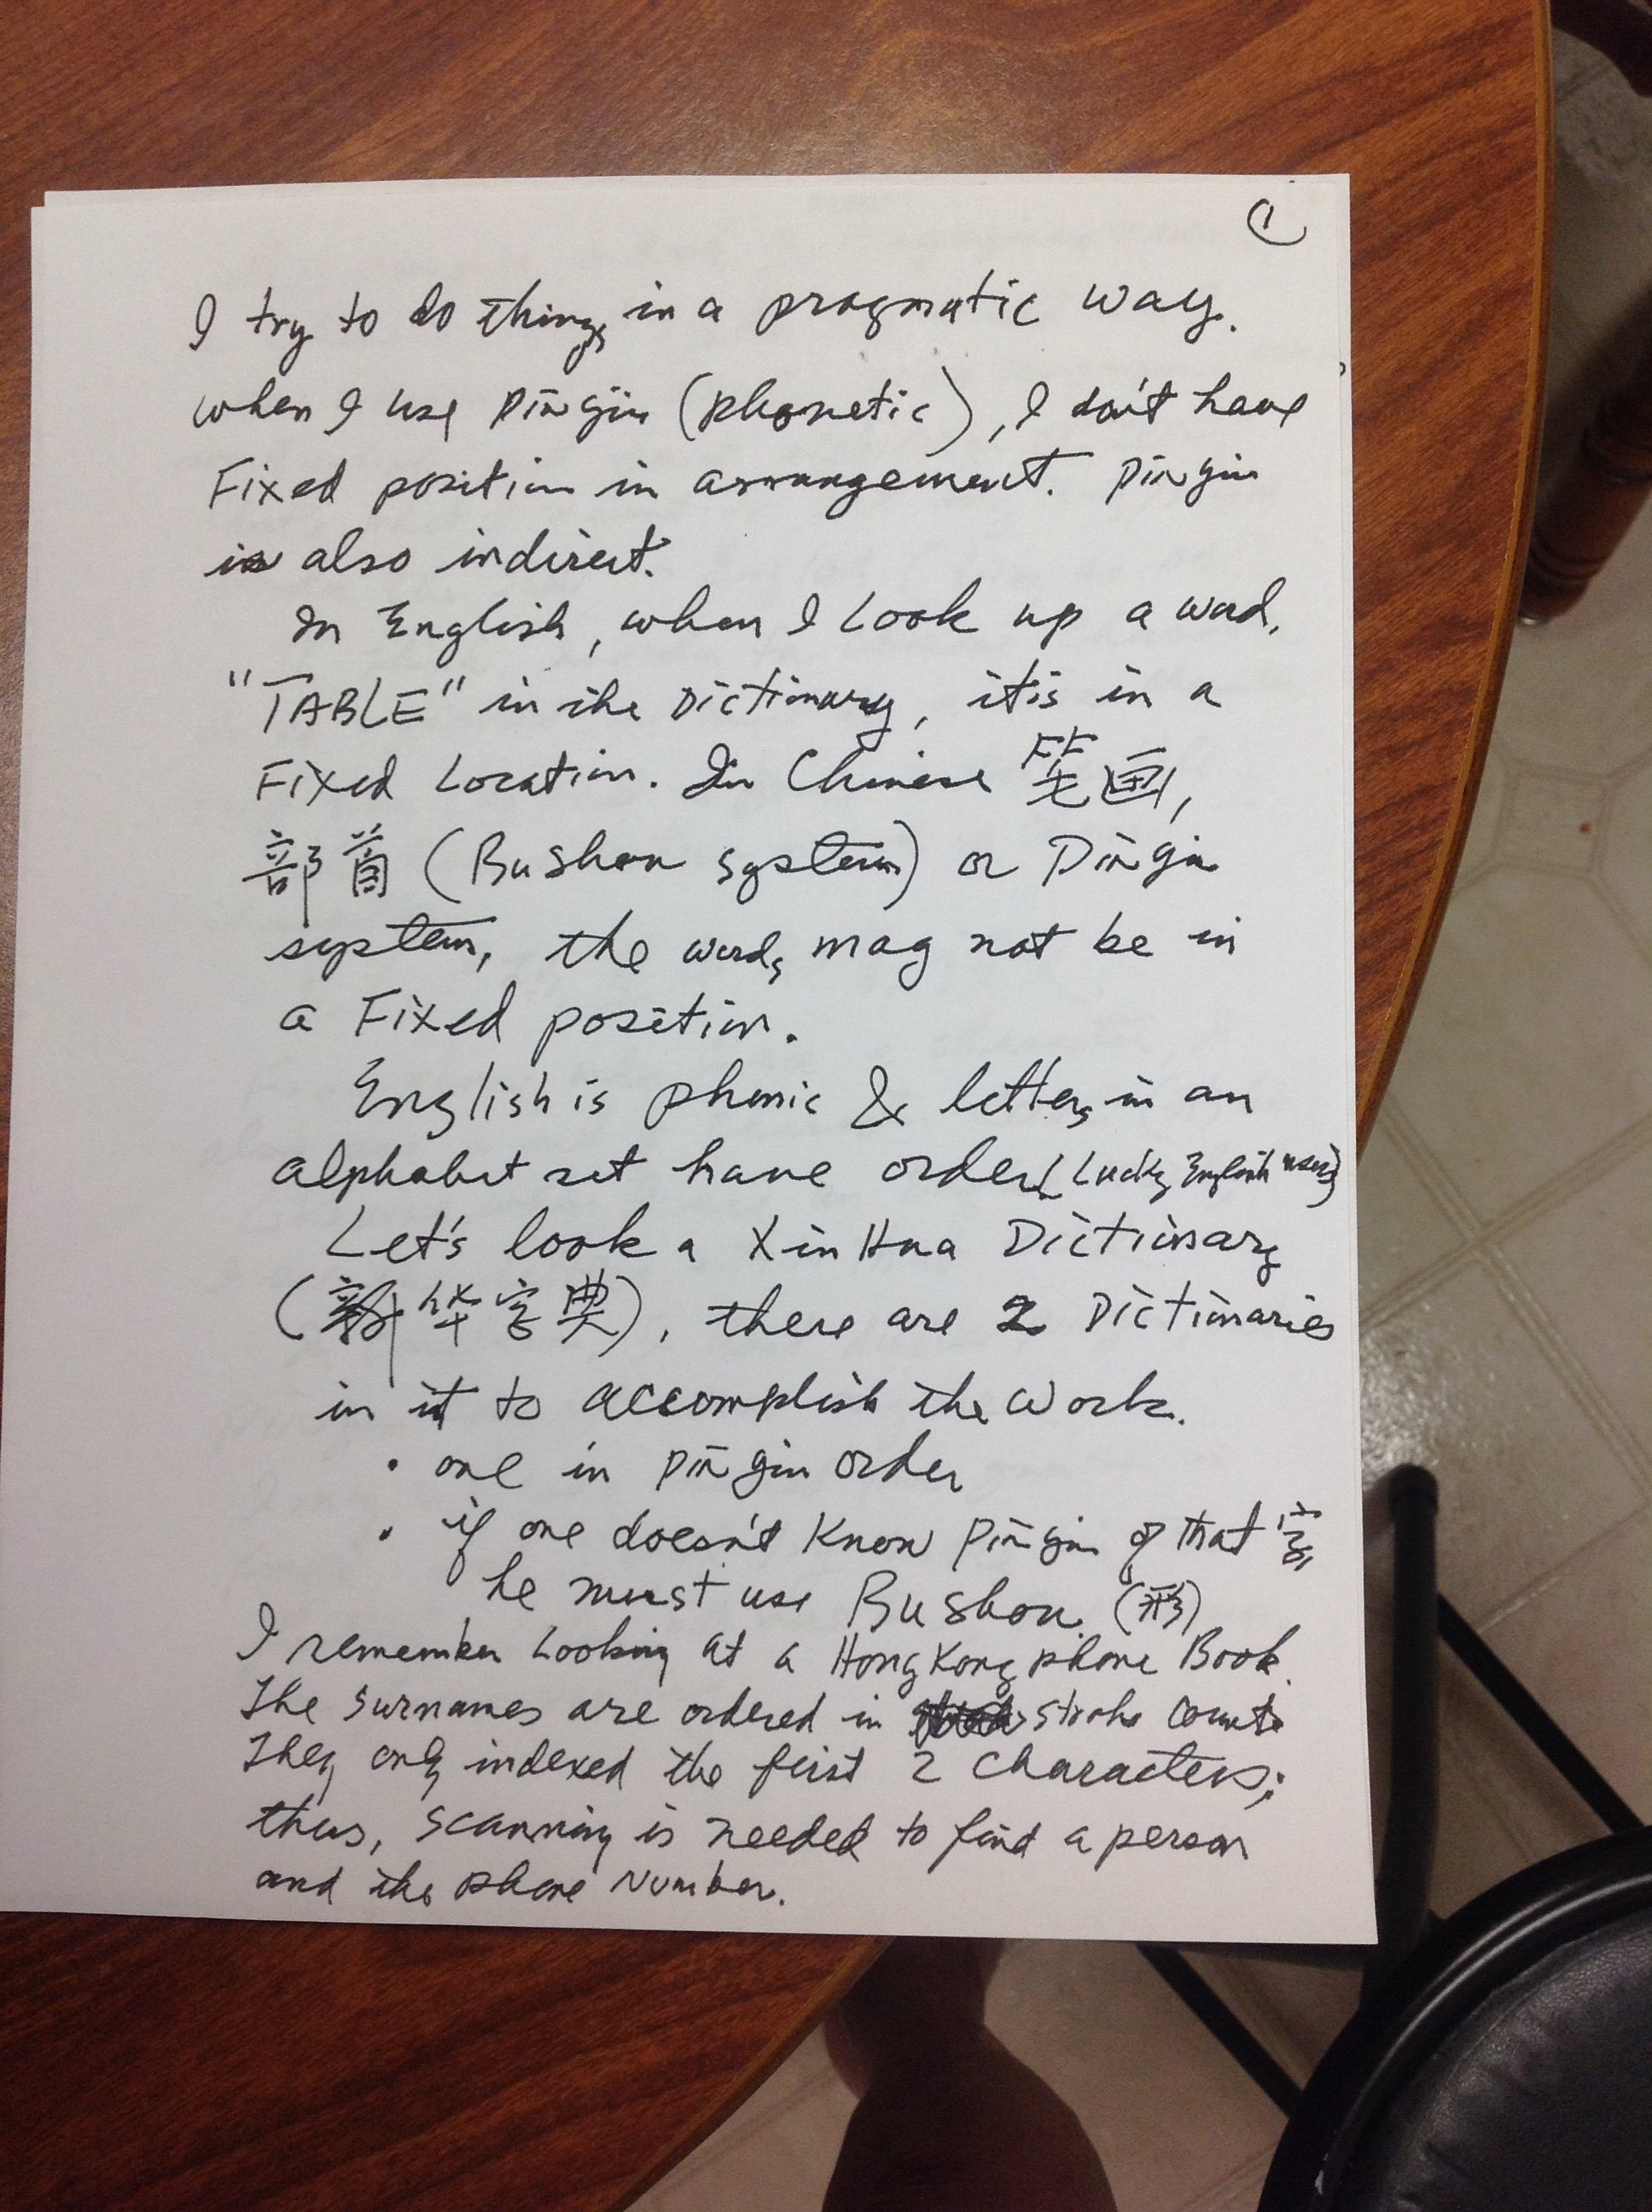 1
I try to do things in a pragmatic way.
when I use pinyin (phonetic), I don't have
Fixed position in arrangement. pinyin
is also indirect.
In English, when I look up a word,
"TABLE" in the Dictionary, it is in a
Fixed Location. In Chinese 笔画,
部首 (Bushou system) or Pinyin
system, the words may not be in
a Fixed position.
English is phonic & letters in an
alphabet set have order (Lucky English users)
Let's look a XinHua Dictionary
(新华字典), there are 2 Dictionaries
in it to accomplish the work.
• one in pinyin order
• if one doesn't know Pinyin of that 字
he must use Bushou (形)
I remember Looking at a Hong Kong phone Book.
The surnames are ordered in stroke counts
They only indexed the first 2 characters;
thus, scanning is needed to find a person
and the phone Number.